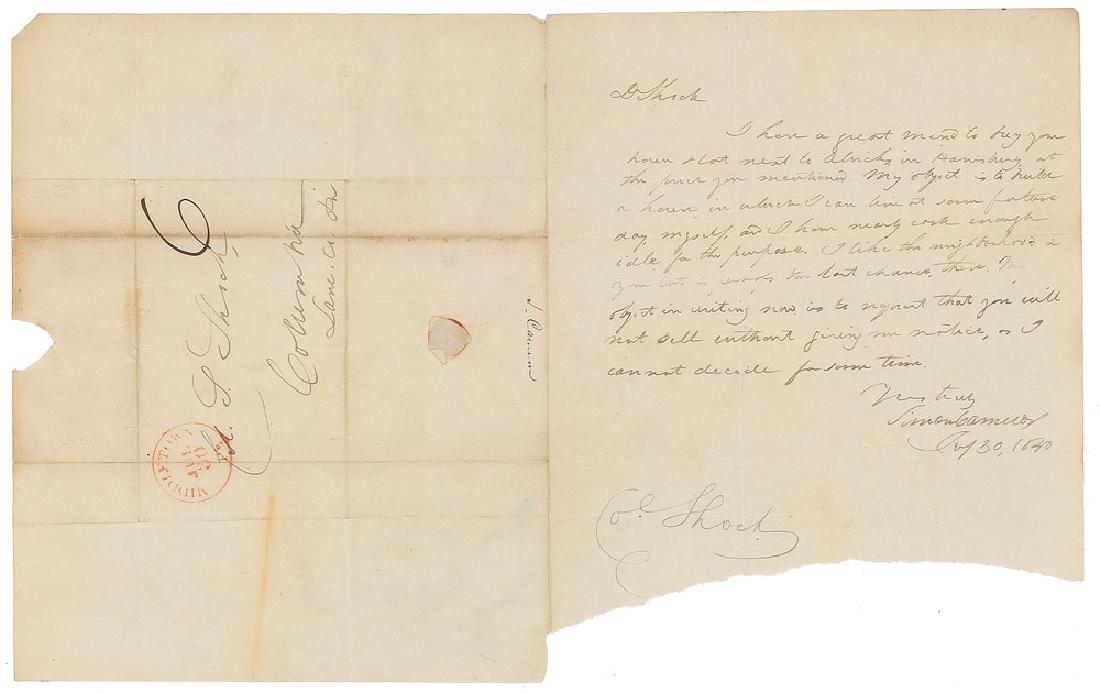 Dr Shock
I have a great mind to buy your
house & lot next to Ulrichs, in Harrisburg at
the price you mentioned. My object is to build
a house in which I can live at some future
day, myself, and I have nearly cash enough
idle for the purpose. I like the neighborhood &
your lot is, perhaps the last chance, there. My
object in writing now, is to request that you will
not sell without giving me notice, as I
cannot decide for some time.
Yours truly
Simon Cameron
30, 1840
Col Shock
6
Col. S. Shock
Columbia
Lanc. Co. Pa
MIDDLETOWN Pa.
30
S. Cameron